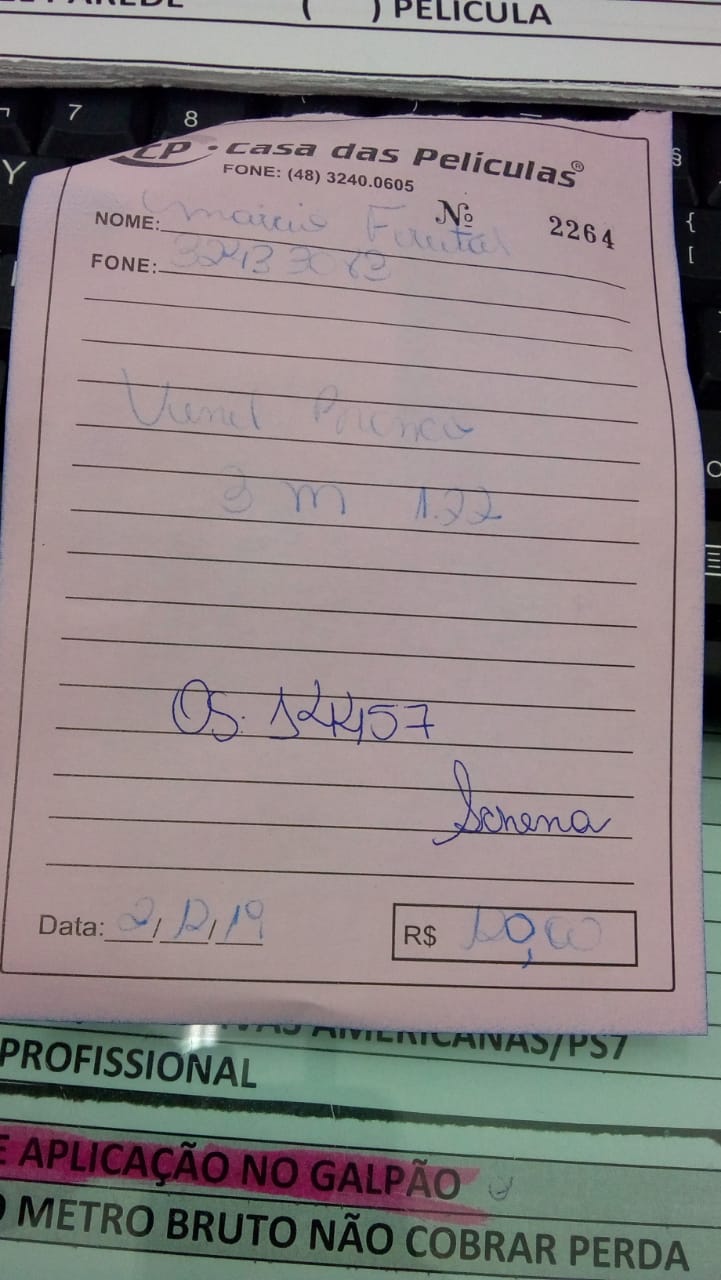 ( ) PELICULA
7 8
Y
CP • casa das Películas®
FONE: (48) 3240.0605
Nº 2264
NOME: marcio
FONE: 3243 3083
Branco
3 m 1.22
OS: 124457
Schena
Data: 2/12/19 R$ 120,00
AMERICANAS/PS7
PROFISSIONAL
E APLICAÇÃO NO GALPÃO
O METRO BRUTO NÃO COBRAR PERDA